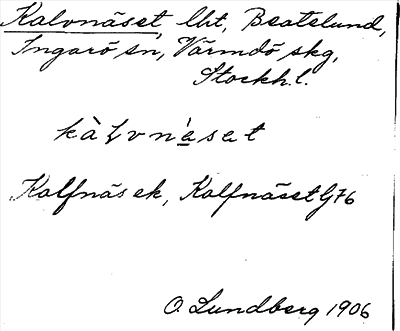 Kalvnäset, lht, Beatelund,
Ingarö sn, Värmdö skg,
Stockh. l.
kàlvnèset
Kalfnäs ek, Kalfnäset G76
O. Lundberg 1906